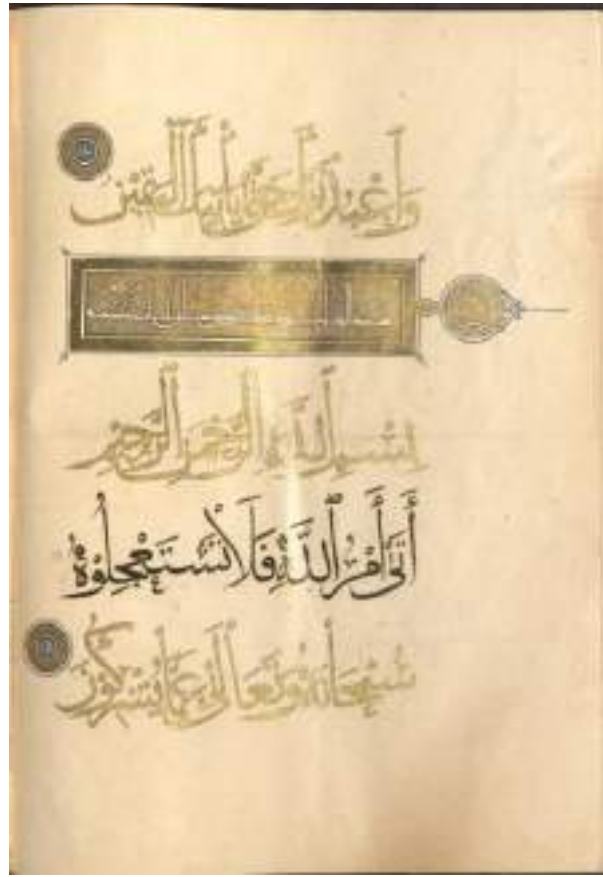 وَاعْبُدْ رَبَّكَ حَتَّى يَأْتِيَكَ الْيَقِينُ
بِسْمِ اللَّهِ الرَّحْمَنِ الرَّحِيمِ
أَتَى أَمْرُ اللَّهِ فَلَا تَسْتَعْجِلُوهُ
سُبْحَانَهُ وَتَعَالَى عَمَّا يُشْرِكُونَ